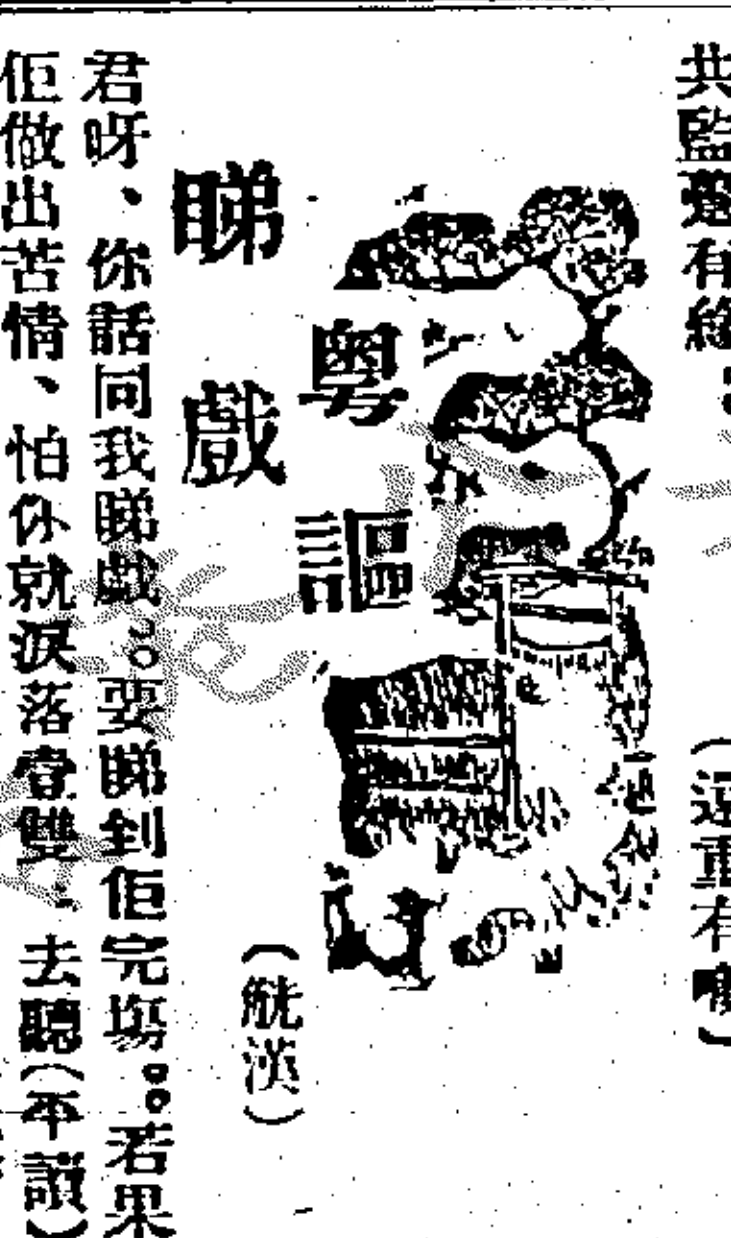 共監躉有緣：
（還重有㗎）
睇粵戲謳
（觥漢）
君呀、你話同我睇戲。要睇到佢完塲。若果
佢做出苦情、怕你就淚落壹雙：去聽（平讀）